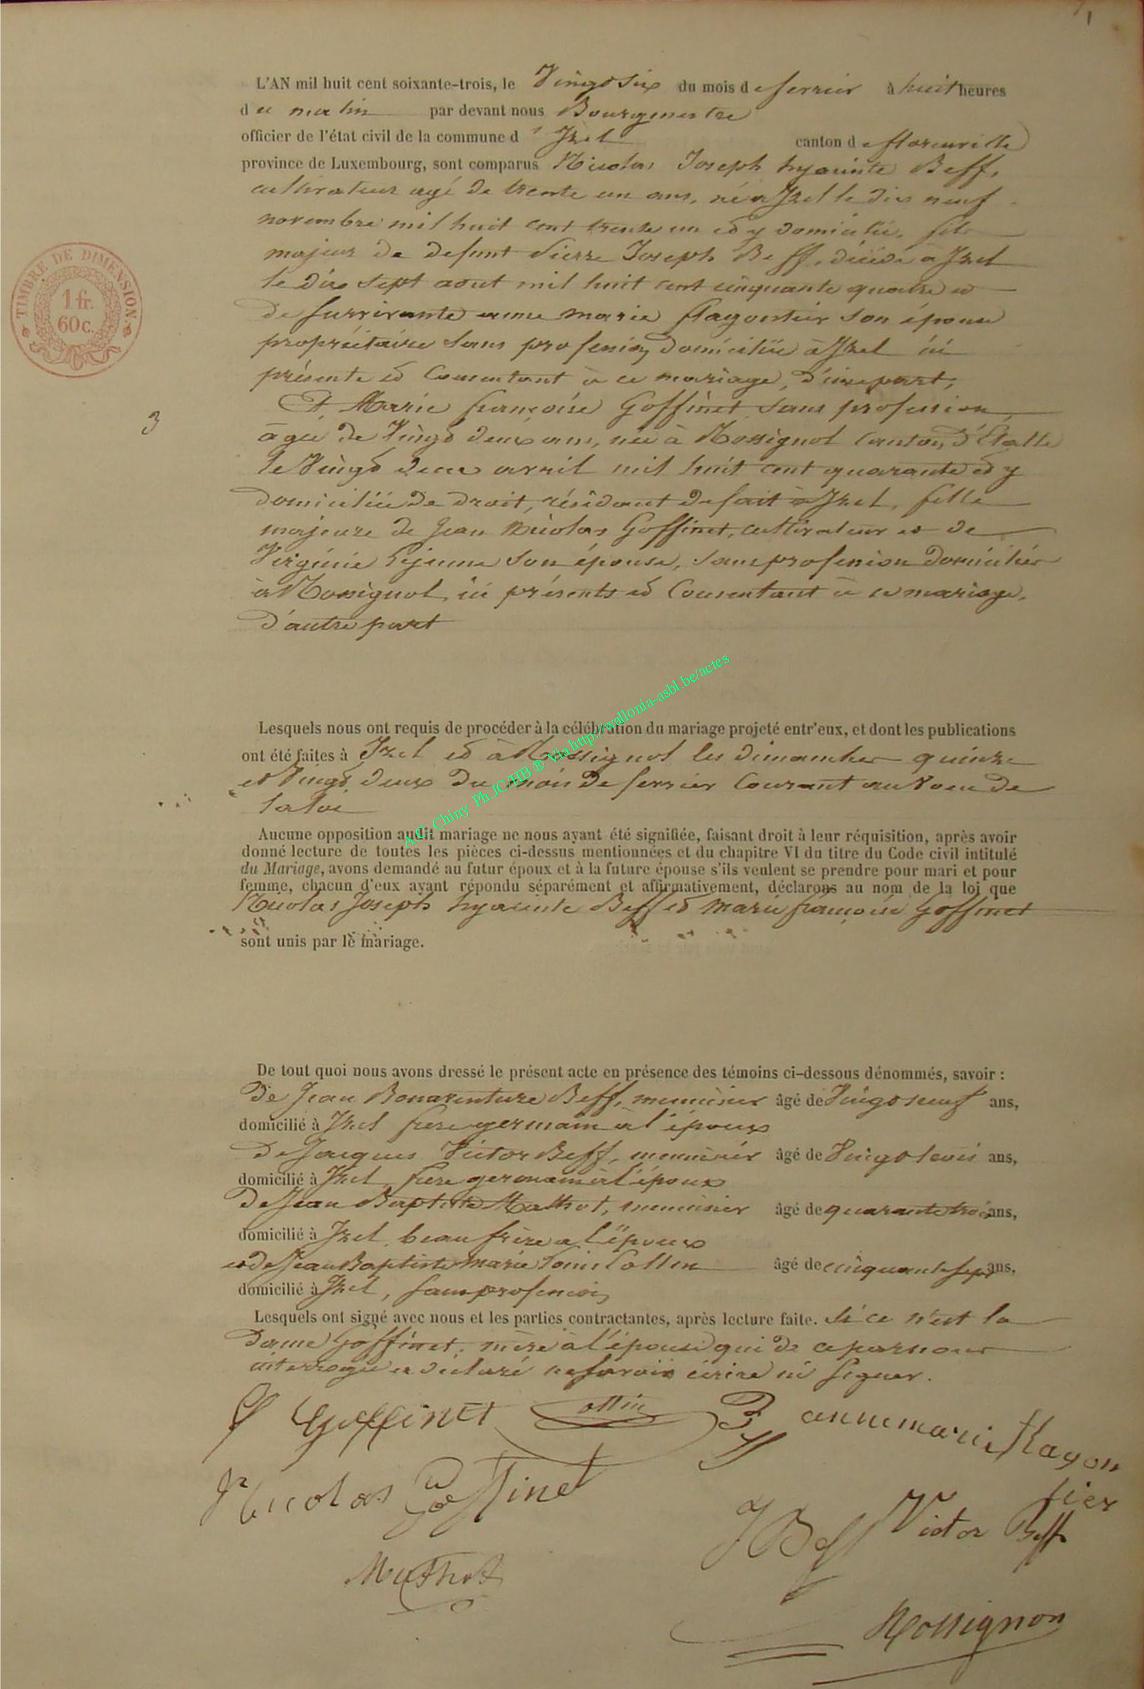 L'AN mil huit cent soixante-trois, le Vingt six du mois de fevrier à huit heures
du matin par devant nous Bourgmestre
officier de l'état civil de la commune d'Izel canton de florenville
province de Luxembourg, sont comparus Nicolas Joseph hyacinte Beff,
cultivateur agé de trente un ans, né à Izel le dix neuf
novembre mil huit cent trente un et y domicilié, fils
majeur de defunt Pierre Joseph Beff, décédé à Izel
le dix sept aout mil huit cent cinquante quatre et
de survivante anne marie flagontier son épouse
propriétaire sans profession domiciliée à Izel ici
présente et Consentant à ce mariage, d'une part,
Et Marie françoise Goffinet sans profession
âgée de Vingt deux ans, née à Rossignol canton d'Etalle
le Vingt deux avril mil huit cent quarante et y
domiciliée de droit, résidant de fait à Izel, fille
majeure de Jean Nicolas Goffinet, cultivateur et de
Virginie Lejeune son épouse, sans profession domiciliés
à Rossignol, ici présents et Consentant à ce mariage,
d'autre part
3
TIMBRE DE DIMENSION
1 fr.
60c.
Lesquels nous ont requis de procéder à la célébration du mariage projeté entr'eux, et dont les publications
ont été faites à Izel et à Rossignol les dimanches quinze
et Vingt deux du mois de fevrier Courant au Voeu de
la loi
Aucune opposition audit mariage ne nous ayant été signifiée, faisant droit à leur réquisition, après avoir
donné lecture de toutes les pièces ci-dessus mentionnées et du chapitre VI du titre du Code civil intitulé
du Mariage, avons demandé au futur époux et à la future épouse s'ils veulent se prendre pour mari et pour
femme, chacun d'eux ayant répondu séparément et affirmativement, déclarons au nom de la loi que
Nicolas Joseph hyacinte Beff et Marie françoise Goffinet
sont unis par le mariage.
A.C. Chiny Ph.JC/HB ® Via http://wallonia-asbl.be/actes
De tout quoi nous avons dressé le présent acte en présence des témoins ci-dessous dénommés, savoir :
De Jean Bonaventure Beff, menuisier âgé de Vingt neuf ans,
domicilié à Izel frere germain à l'époux
De Jacques Victor Beff, menuisier âgé de Vingt trois ans,
domicilié à Izel frere germain à l'époux
De Jean Baptiste Mathot, menuisier âgé de quarante trois ans,
domicilié à Izel beau frère a l'époux
et de Jean Baptiste Marie Louis Collin âgé de cinquante sept ans,
domicilié à Izel, sans profession
Lesquels ont signé avec nous et les parties contractantes, après lecture faite. Si ce n'est la
Dame Goffinet, mère à l'épouse qui de ce par nous
interrogée a déclaré ne savoir écrire ni signer.
Goffinet ollin annemarie flagon
tier
Nicolas Goffinet
J Beff Victor Beff
Mathot
Rossignon